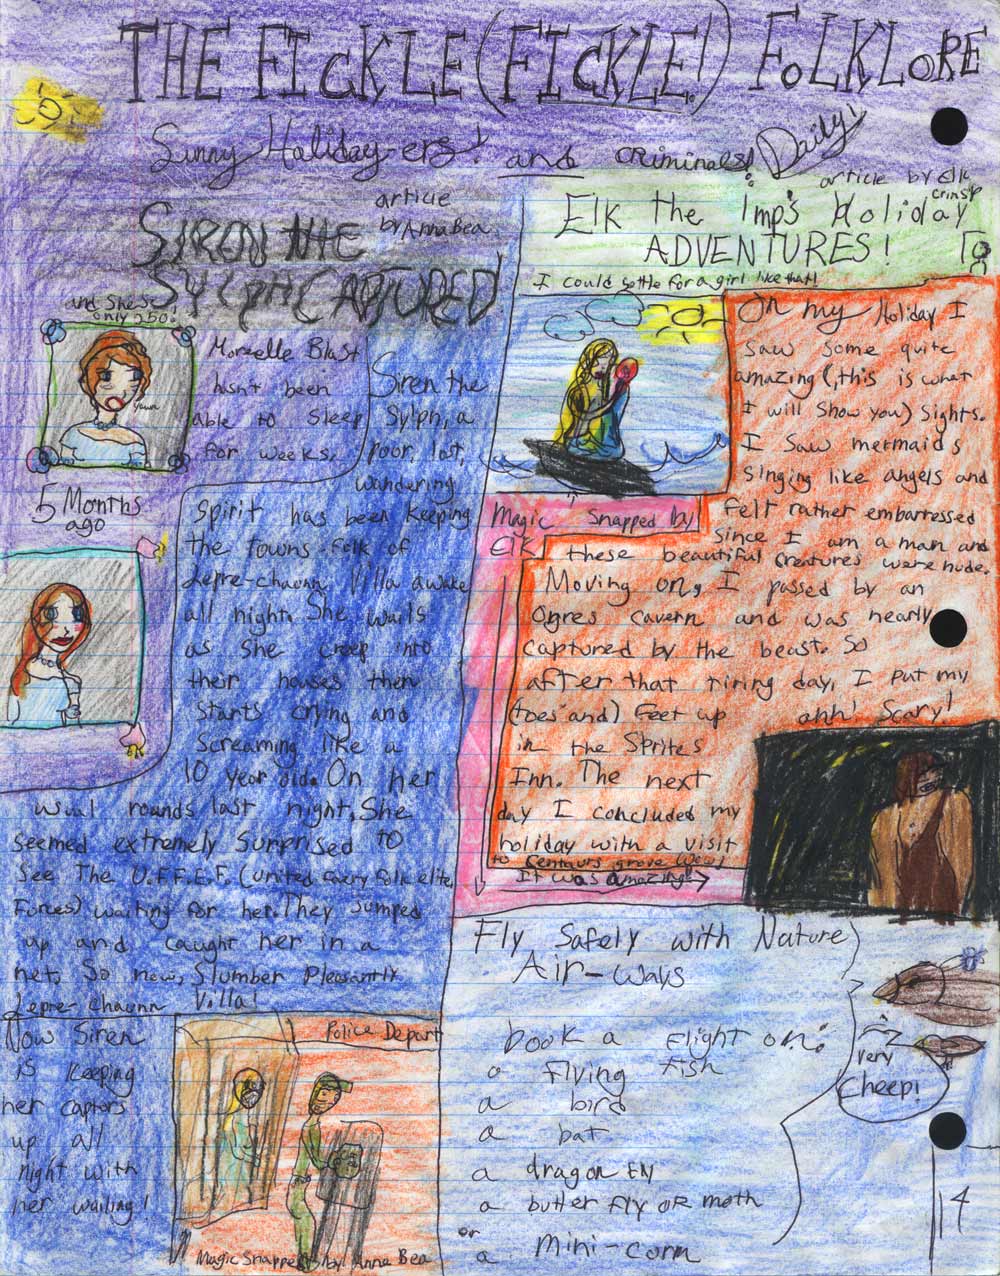 THE FICKLE (FICKLE!) FOLKLORE
Sunny Holiday-ers! and criminals! Daily!
article
by Anna Bea
SIREN THE
SYLPH CAPTURED
and she's
only 250!
Yawn
Morcelle Blast
hasn't been
able to sleep
for weeks.
5 Months
ago
Siren the
Sylph, a
poor, lost,
wandering
spirit has been keeping
the towns-folk of
Lepre-chaunn Villa awake
all night. She wails
as she creep into
their houses then
starts crying and
screaming like a
10 year old. On her
usual rounds last night, She
seemed extremely surprised to
see The U.F.F.E.F. (united faery folk elite
Forces) waiting for her. They jumped
up and caught her in a
net. So now, Slumber Pleasantly
Lepre-chaunn Villa!
Now Siren
is keeping
her captors
up all
night with
her wailing!
Police Depart
Magic Snapped by Anna Bea
article by Elk
crinsp
Elk the Imp's Holiday
ADVENTURES!
I could settle for a girl like that!
Magic snapped by
Elk
On my Holiday I
saw some quite
amazing (, this is what
I will show you) sights.
I saw mermaids
singing like angels and
felt rather embarressed
since I am a man and
these beautiful creatures were nude.
Moving on, I passed by an
Ogres cavern and was nearly
captured by the beast. So
after that tiring day, I put my
(toes and) feet up
in the Sprites
Inn. The next
day I concluded my
holiday with a visit
to Centaurs grove Wow!
It was amazing!
ahh! Scary!
Fly Safely with Nature
Air-ways
book a flight on:
a flying fish
a bird
a bat
a dragon EN
a butterfly OR moth
or
a mini-corn
very
Cheep!
14